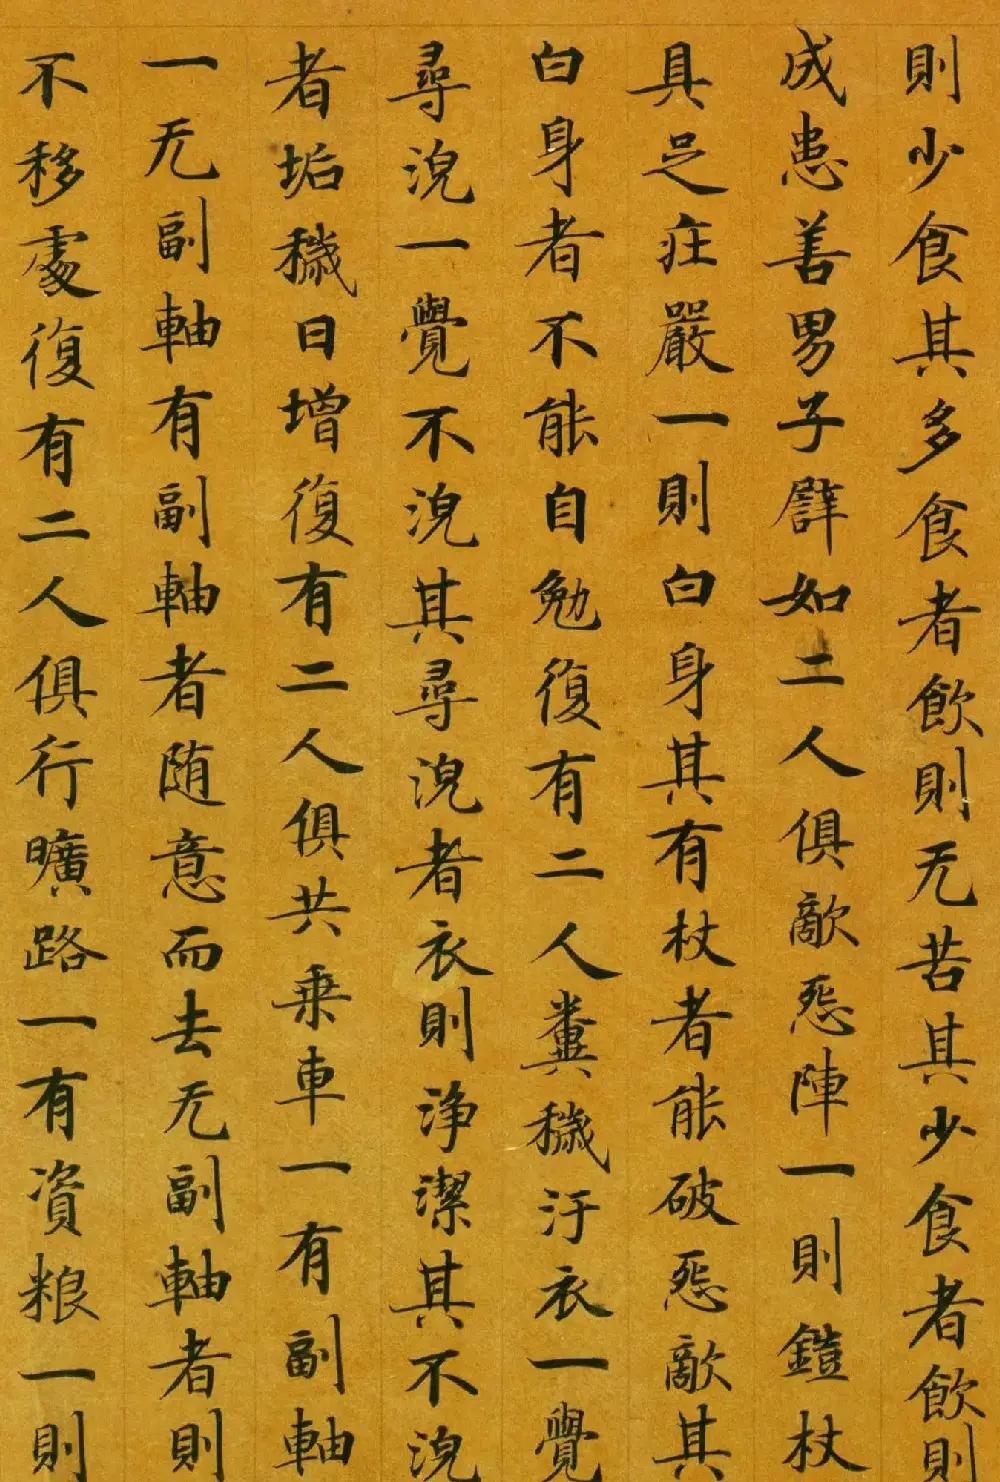 則少食其多食者飲則无苦其少食者飲則
成患善男子譬如二人俱敵怨陣一則鎧杖
具足莊嚴一則白身其有杖者能破怨敵其
白身者不能自勉復有二人糞穢汙衣一覺
尋浣一覺不浣其尋浣者衣則淨潔其不浣
者垢穢日增復有二人俱共乘車一有副軸
一无副軸有副軸者随意而去无副軸者則
不移處復有二人俱行曠路一有資粮一則